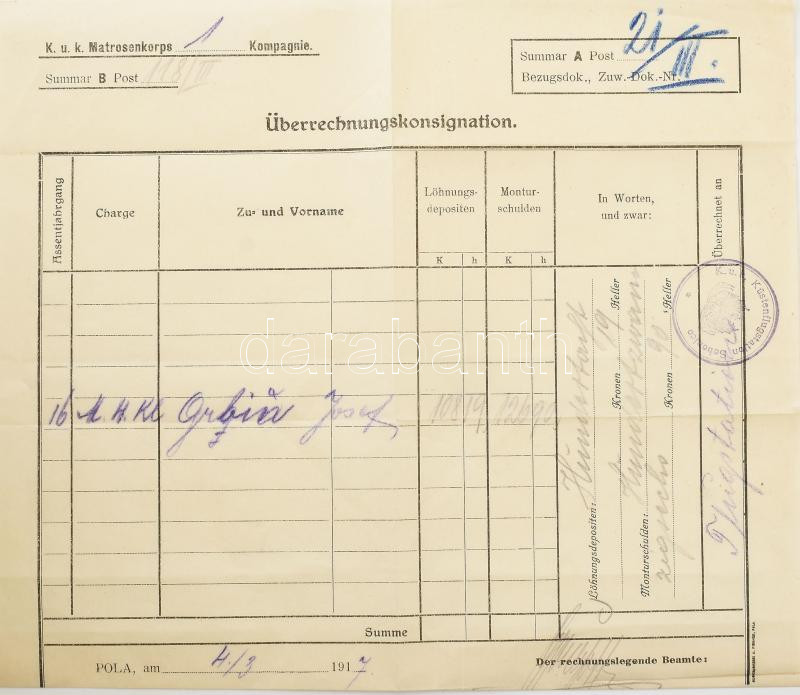 K. u. k. Matrosenkorps 1 Kompagnie.
Summar B Post 118/III
Summar A Post 21
Bezugsdok., Zuw.-Dok.-Nr. III.
Überrechnungskonsignation.
Assentjahrgang
Charge
Zu- und Vorname
Löhnungs-
depositen
Montur-
schulden
In Worten,
und zwar:
Überrechnet an
K h K h
16 M. H. Kl Josef 108 19 126 90
Löhnungsdepositen: Hundertacht Kronen 19 Heller
Monturschulden: Kronen 90 Heller
K. u. k. Küstenflugstation Sebenico
darabanth
Summe
POLA, am 4/3 1917
Der rechnungslegende Beamte: